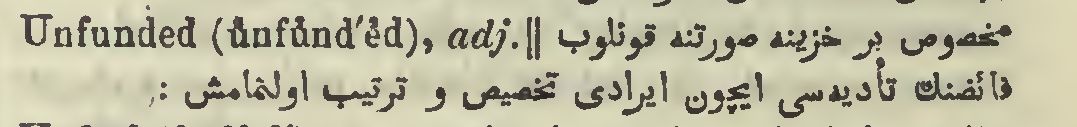 Unfunded (ŭnfŭnd′ĕd), adj. || مخصوص بر خزینه صورتنه قونلوب
فائضنك تأدیه‌سی ایچون ایرادی تخصیص و ترتیب اولنمامش :